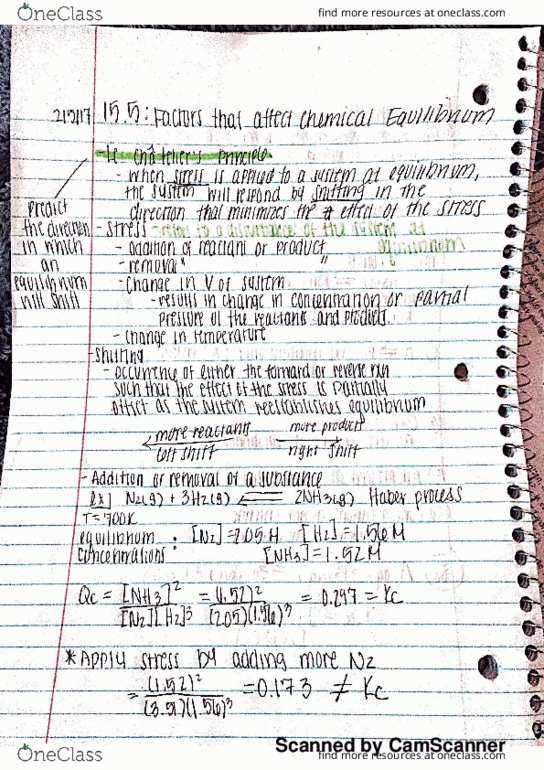 OneClass
find more resources at oneclass.com
2/5/17 15.5: Factors that affect chemical Equilibrium
- Le châtelier's principle
- when stress is applied to a system at equilibrium,
the system will respond by shifting in the
direction that minimizes the effect of the stress
predict
the direction
in which
an
equilibrium
will shift
- stress - refers to a disturbance of the system at
equilibrium
- addition of reactant or product
- removal " "
- change in V of system
- results in change in concentration or partial
pressure of the reactants and products
- change in temperature
- Shifting
- occurrence of either the forward or reverse rxn
such that the effect of the stress is partially
offset as the system reestablishes equilibrium
more reactants more products
left shift right shift
- Addition or removal of a substance
ex] N2(g) + 3H2(g) ⇌ 2NH3(g) Haber process
T = 700K
equilibrium : [N2] = 2.05 M [H2] = 1.56 M
concentrations [NH3] = 1.52 M
Qc = [NH3]² / [N2][H2]³ = (1.52)² / (2.05)(1.56)³ = 0.297 = Kc
* Apply stress by adding more N2
= (1.52)² / (3.51)(1.56)³ = 0.173 ≠ Kc
Scanned by CamScanner
OneClass
find more resources at oneclass.com